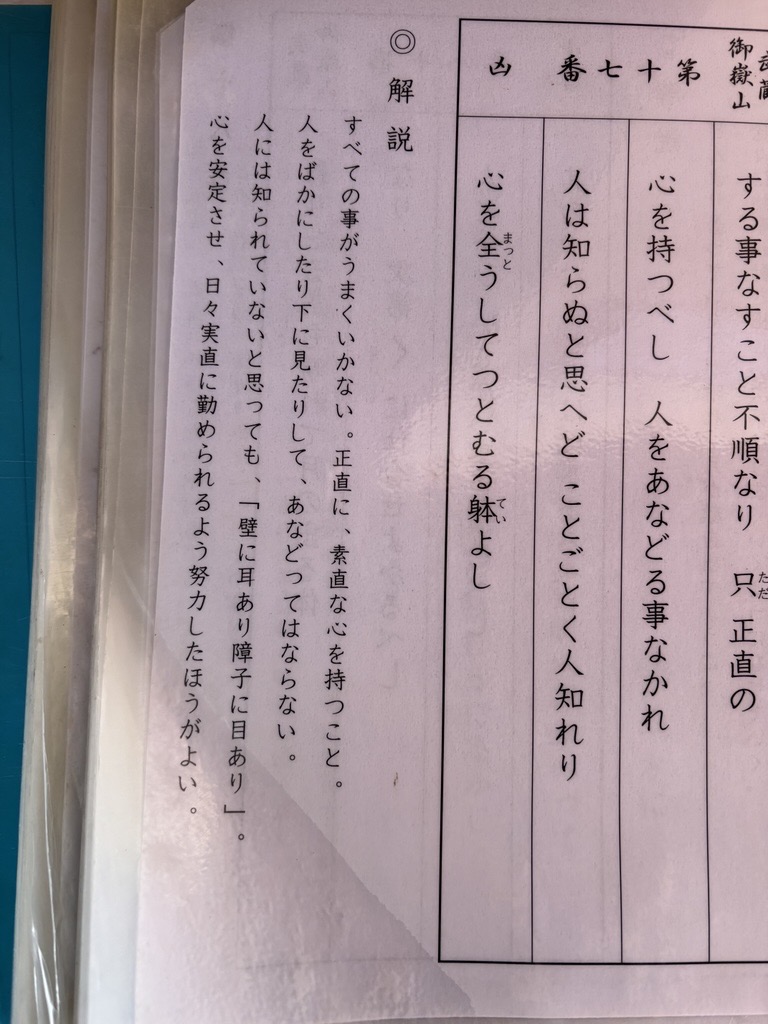 武蔵
御嶽山
第十七番　凶
する事なすこと不順なり　只正直の
ただ
心を持つべし　人をあなどる事なかれ
人は知らぬと思へど　ことごとく人知れり
心を全うしてつとむる躰よし
まっと
てい
◎解説
すべての事がうまくいかない。正直に、素直な心を持つこと。
人をばかにしたり下に見たりして、あなどってはならない。
人には知られていないと思っても、「壁に耳あり障子に目あり」。
心を安定させ、日々実直に勤められるよう努力したほうがよい。